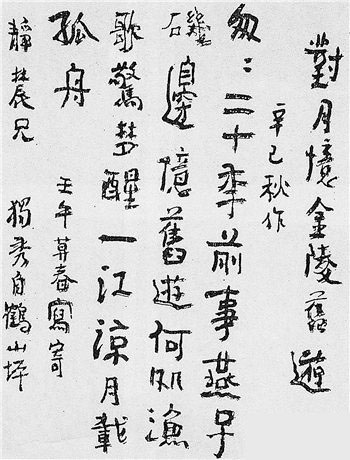 對月憶金陵舊遊
辛巳秋作
匆〻二十秊前事燕子
磯邊憶舊遊何処漁
歌驚梦醒一江涼月載
孤舟
壬午暮春寫寄
靜農兄
獨秀自鶴山坪